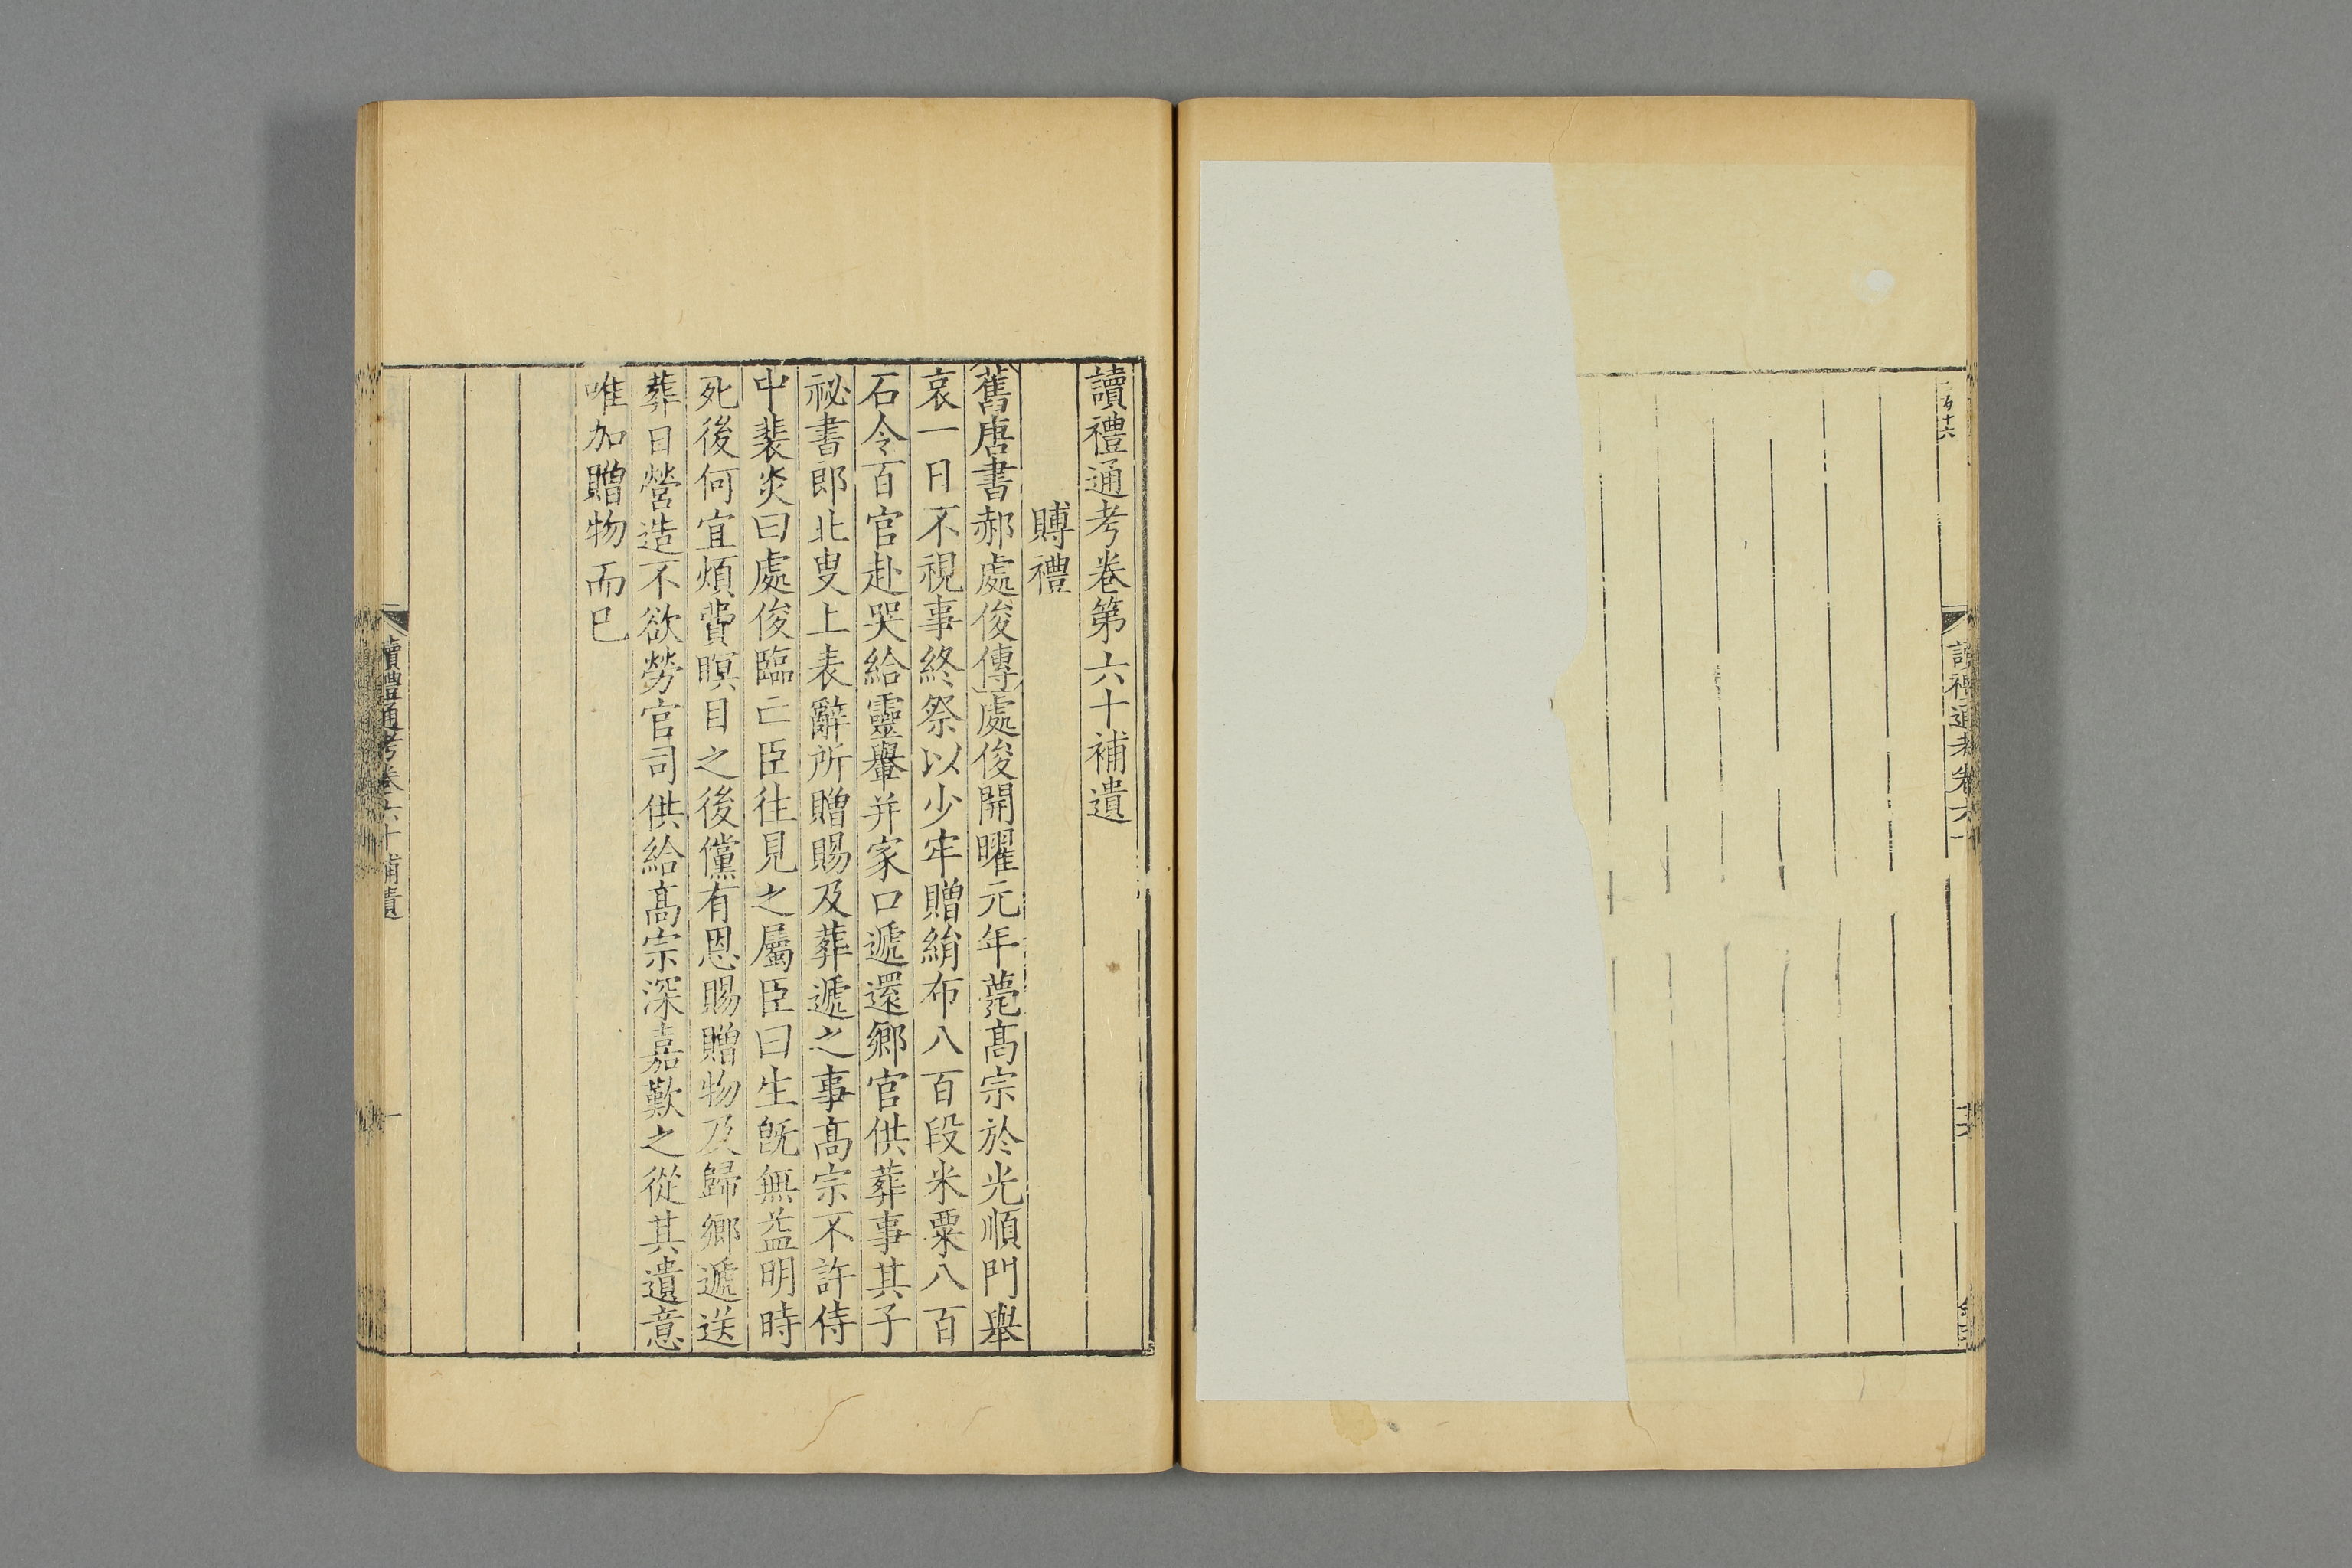 讀禮通考卷六十
讀禮通考卷第六十補遺
賻禮
舊唐書郝處俊傳處俊開曜元年薨髙宗於光順門舉
哀一日不視事終祭以少牢贈絹布八百段米粟八百
石令百官赴哭給靈轝并家口遞還鄉官供葬事其子
祕書郎北叟上表辭所贈賜及葬遞之事髙宗不許侍
中裴炎曰處俊臨亡臣往見之屬臣曰生旣無益明時
死後何宜煩費瞑目之後儻有恩賜贈物及歸鄉遞送
葬日營造不欲勞官司供給髙宗深嘉歎之從其遺意
唯加贈物而已
讀禮通考卷六十補遺
一